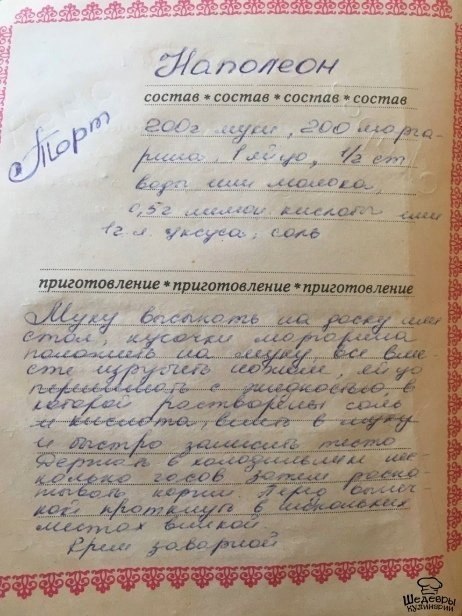 Наполеон
Торт
состав * состав * состав * состав
200г муки, 200 марга-
рина, 1 яйцо, 1/2 ст
воды или молока,
0,5г лимон кислоты или
1г л. уксуса, соль
приготовление * приготовление * приготовление
Муку высыпать на доску или
стол, кусочки маргарина
положить на муку, все вме-
сте изрубить ножом, яйцо
перемешать с жидкостью в
которой растворены соль
и кислота, влить в муку
и быстро замесить тесто
Держать в холодильнике нес-
колько часов затем раска-
тывать коржи Перед выпеч
кой проткнуть в нескольких
местах вилкой.
Крем заварной
Шедевры
кулинарии